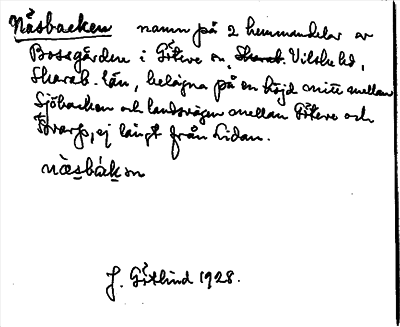 Näsbacken namn på 2 hemmandelar av
Bossgården i Götene sn, Skarab. Vilske hd,
Skarab. län, belägna på en höjd mitt mellan
Sjöbacken och landsvägen mellan Götene och
, ej långt från Lidan.
næsbàkən
J. Götlind 1928.